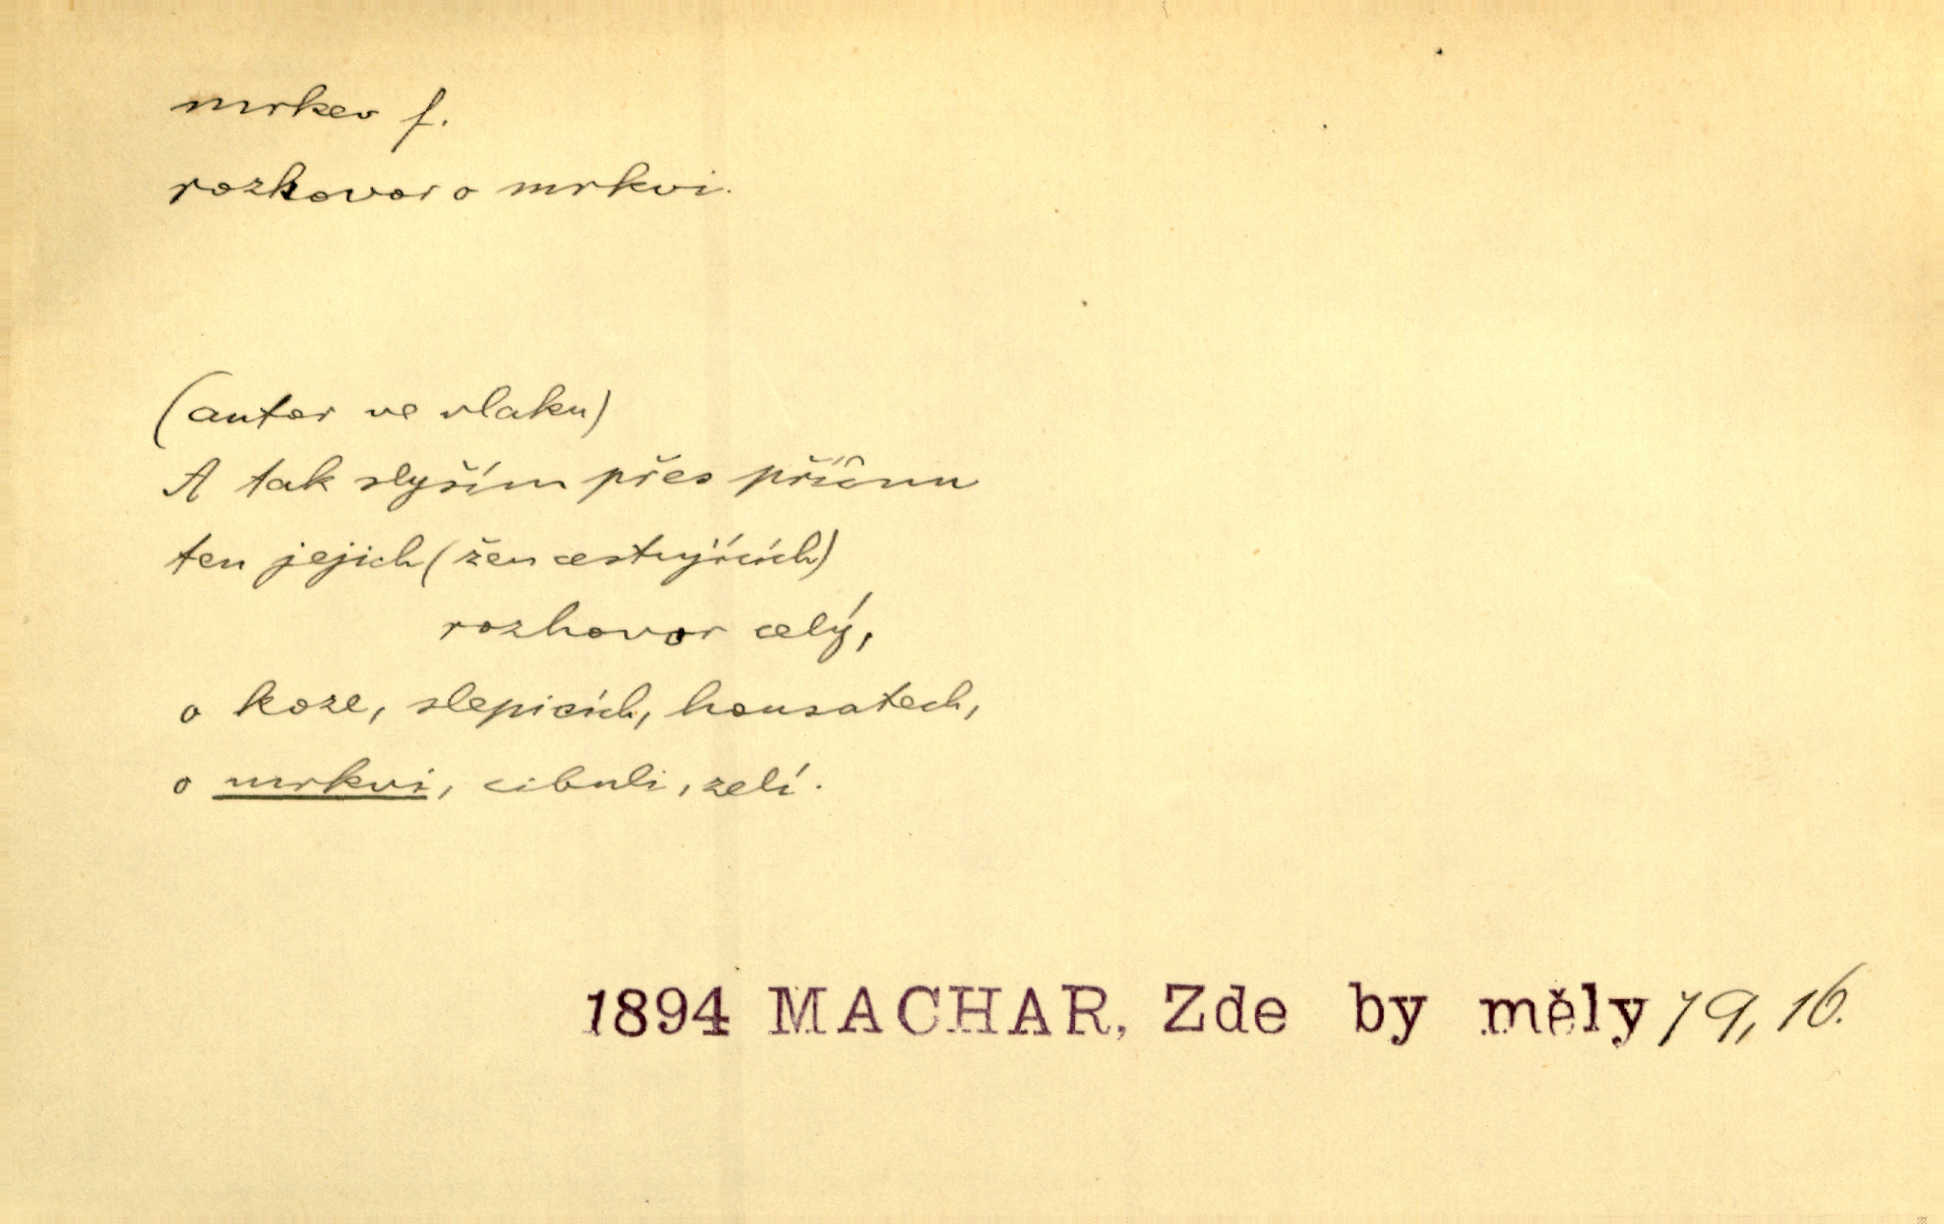 mrkev f.
rozhovor o mrkvi.
(autor ve vlaku)
A tak slyším přes příčnu
ten jejich (žen cestujících)
rozhovor celý,
o koze, slepicích, housatech,
o mrkvi, cibuli, zelí.
1894 MACHAR, Zde by měly 79, 16.